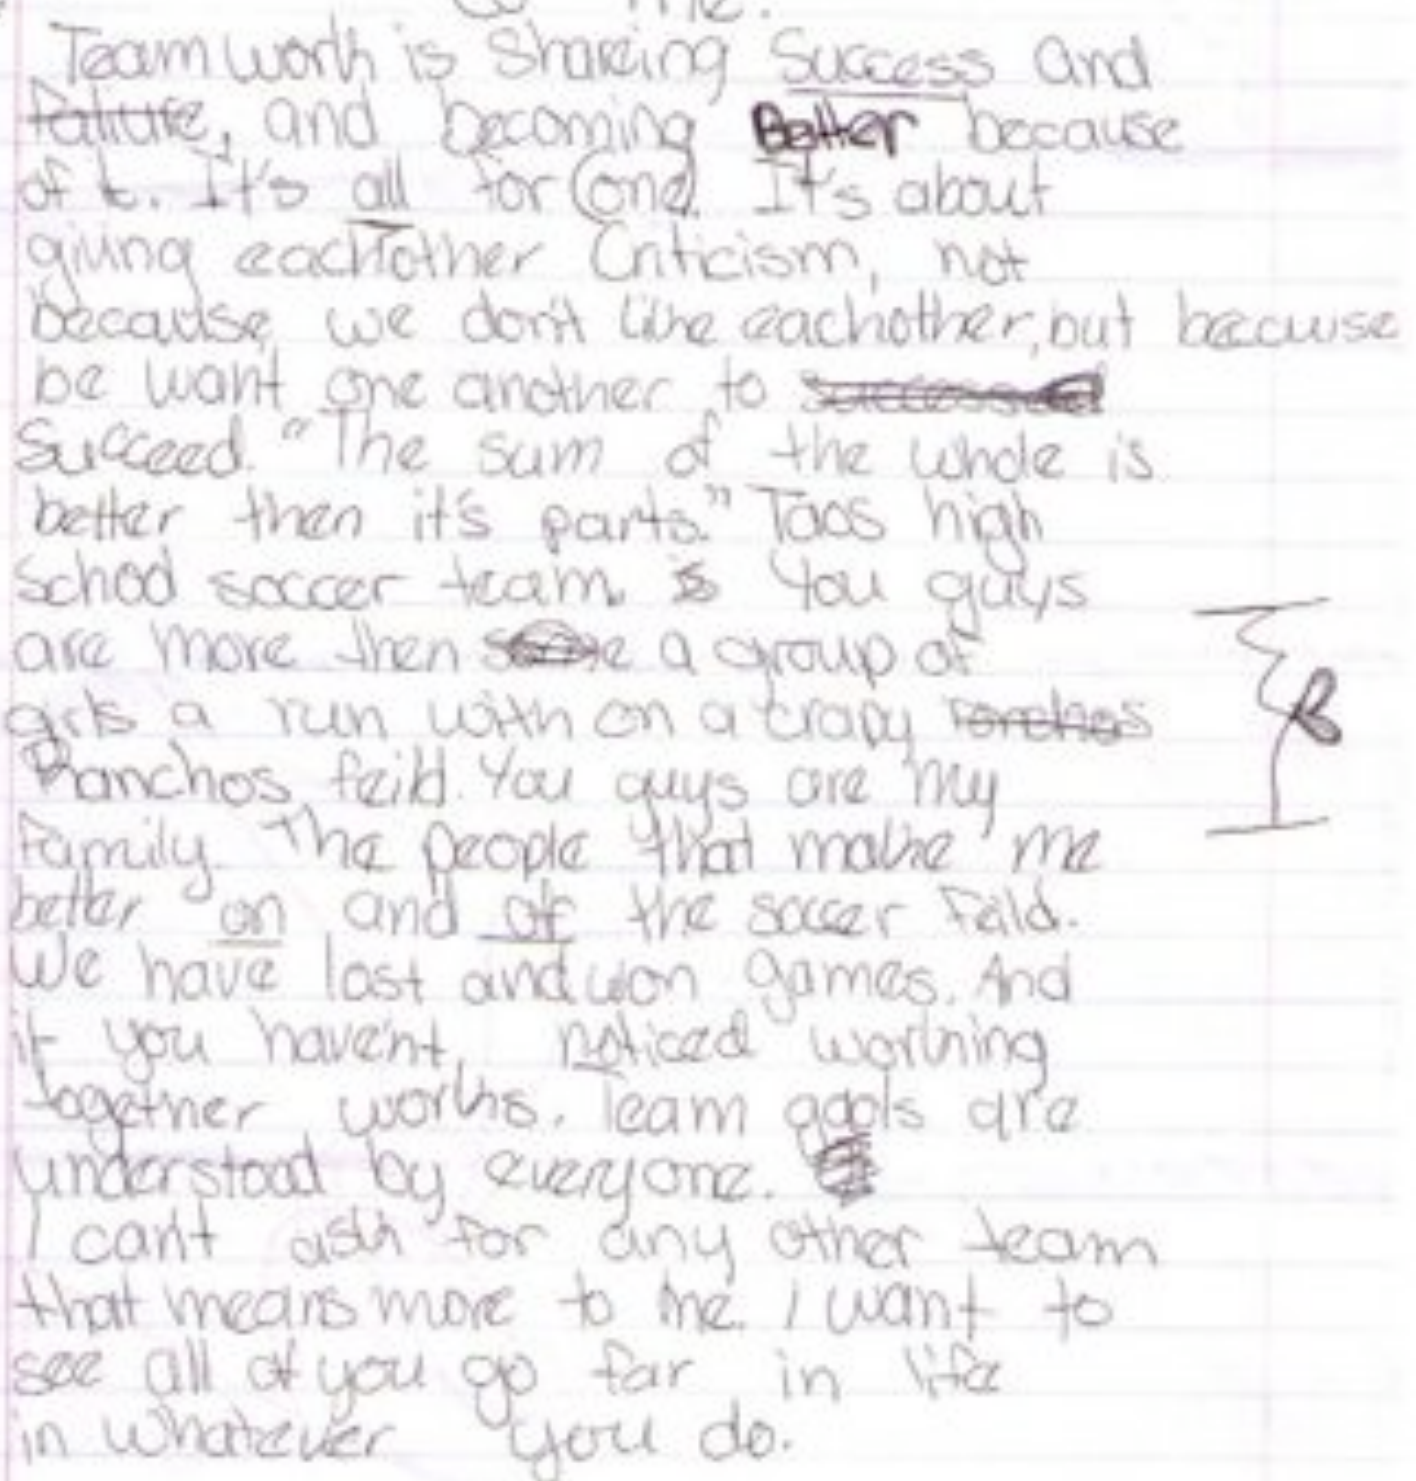 to me.
Teamwork is Sharing Success and
Faliure, and becoming Better because
of it. It's all for one. It's about
giving eachother Criticism, not
because we don't like eachother, but because
be want one another to
Succeed. "The sum of the whole is
better then it's parts." Taos high
School soccer team. You guys
are more then a group of
girls a run with on a crapy ranchos
Ranchos feild. You guys are my
Family. The people that make me
better on and of the soccer Feild.
We have lost and won games. And
if you haven't, noticed working
together works. Team goals are
understood by everyone.
I can't ask for any other team
that means more to me. I want to
see all of you go far in life
in whatever you do.